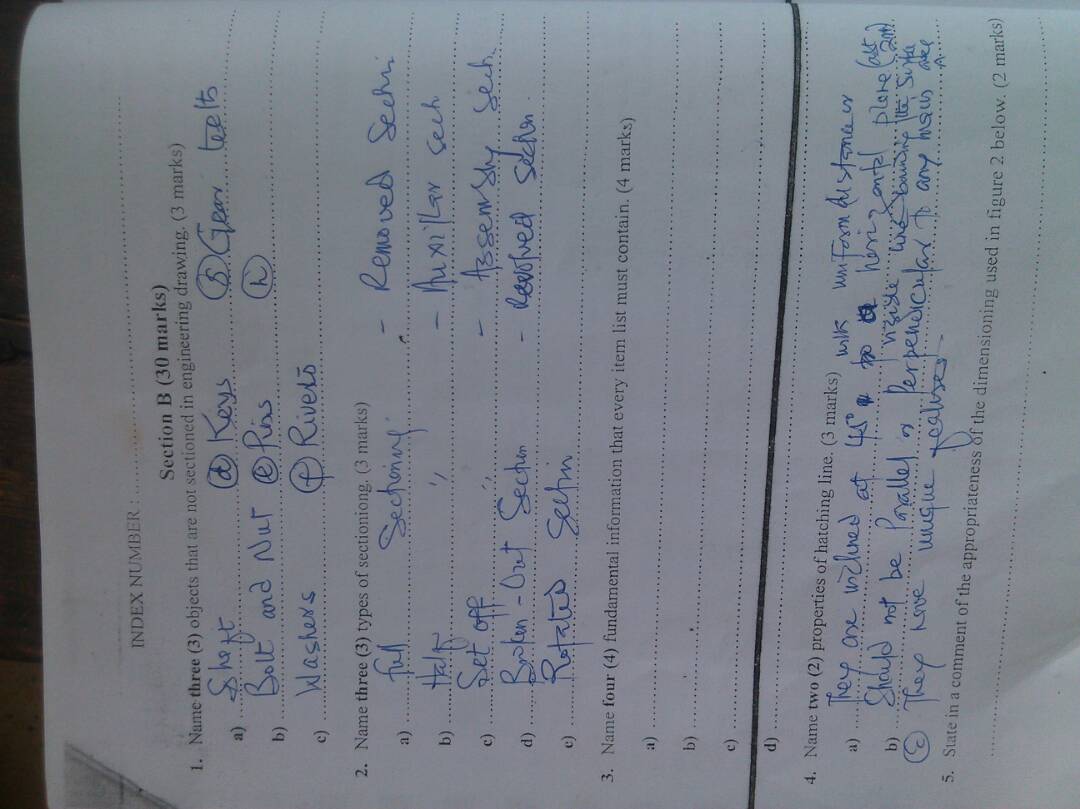 INDEX NUMBER :
Section B (30 marks)
1. Name three (3) objects that are not sectioned in engineering drawing. (3 marks)
a) Shaft (d) Keys (g) Gear teeth
b) Bolt and Nut (e) Pins (h)
c) Washers (f) Rivets
2. Name three (3) types of sectioniong. (3 marks)
a) full Sectioning - Removed
b) Half " - sech
c) Set off " - sech
d) Broken-Out Section - Revolved Section
e) Rotated Section
3. Name four (4) fundamental information that every item list must contain. (4 marks)
a)
b)
c)
d)
4. Name two (2) properties of hatching line. (3 marks)
a) They are inclined at 45° to horizontal plane with uniform distance
b) Should not be Parallel or Perpendicular to any visible line
(c) They have unique
5. State in a comment of the appropriateness of the dimensioning used in figure 2 below. (2 marks)